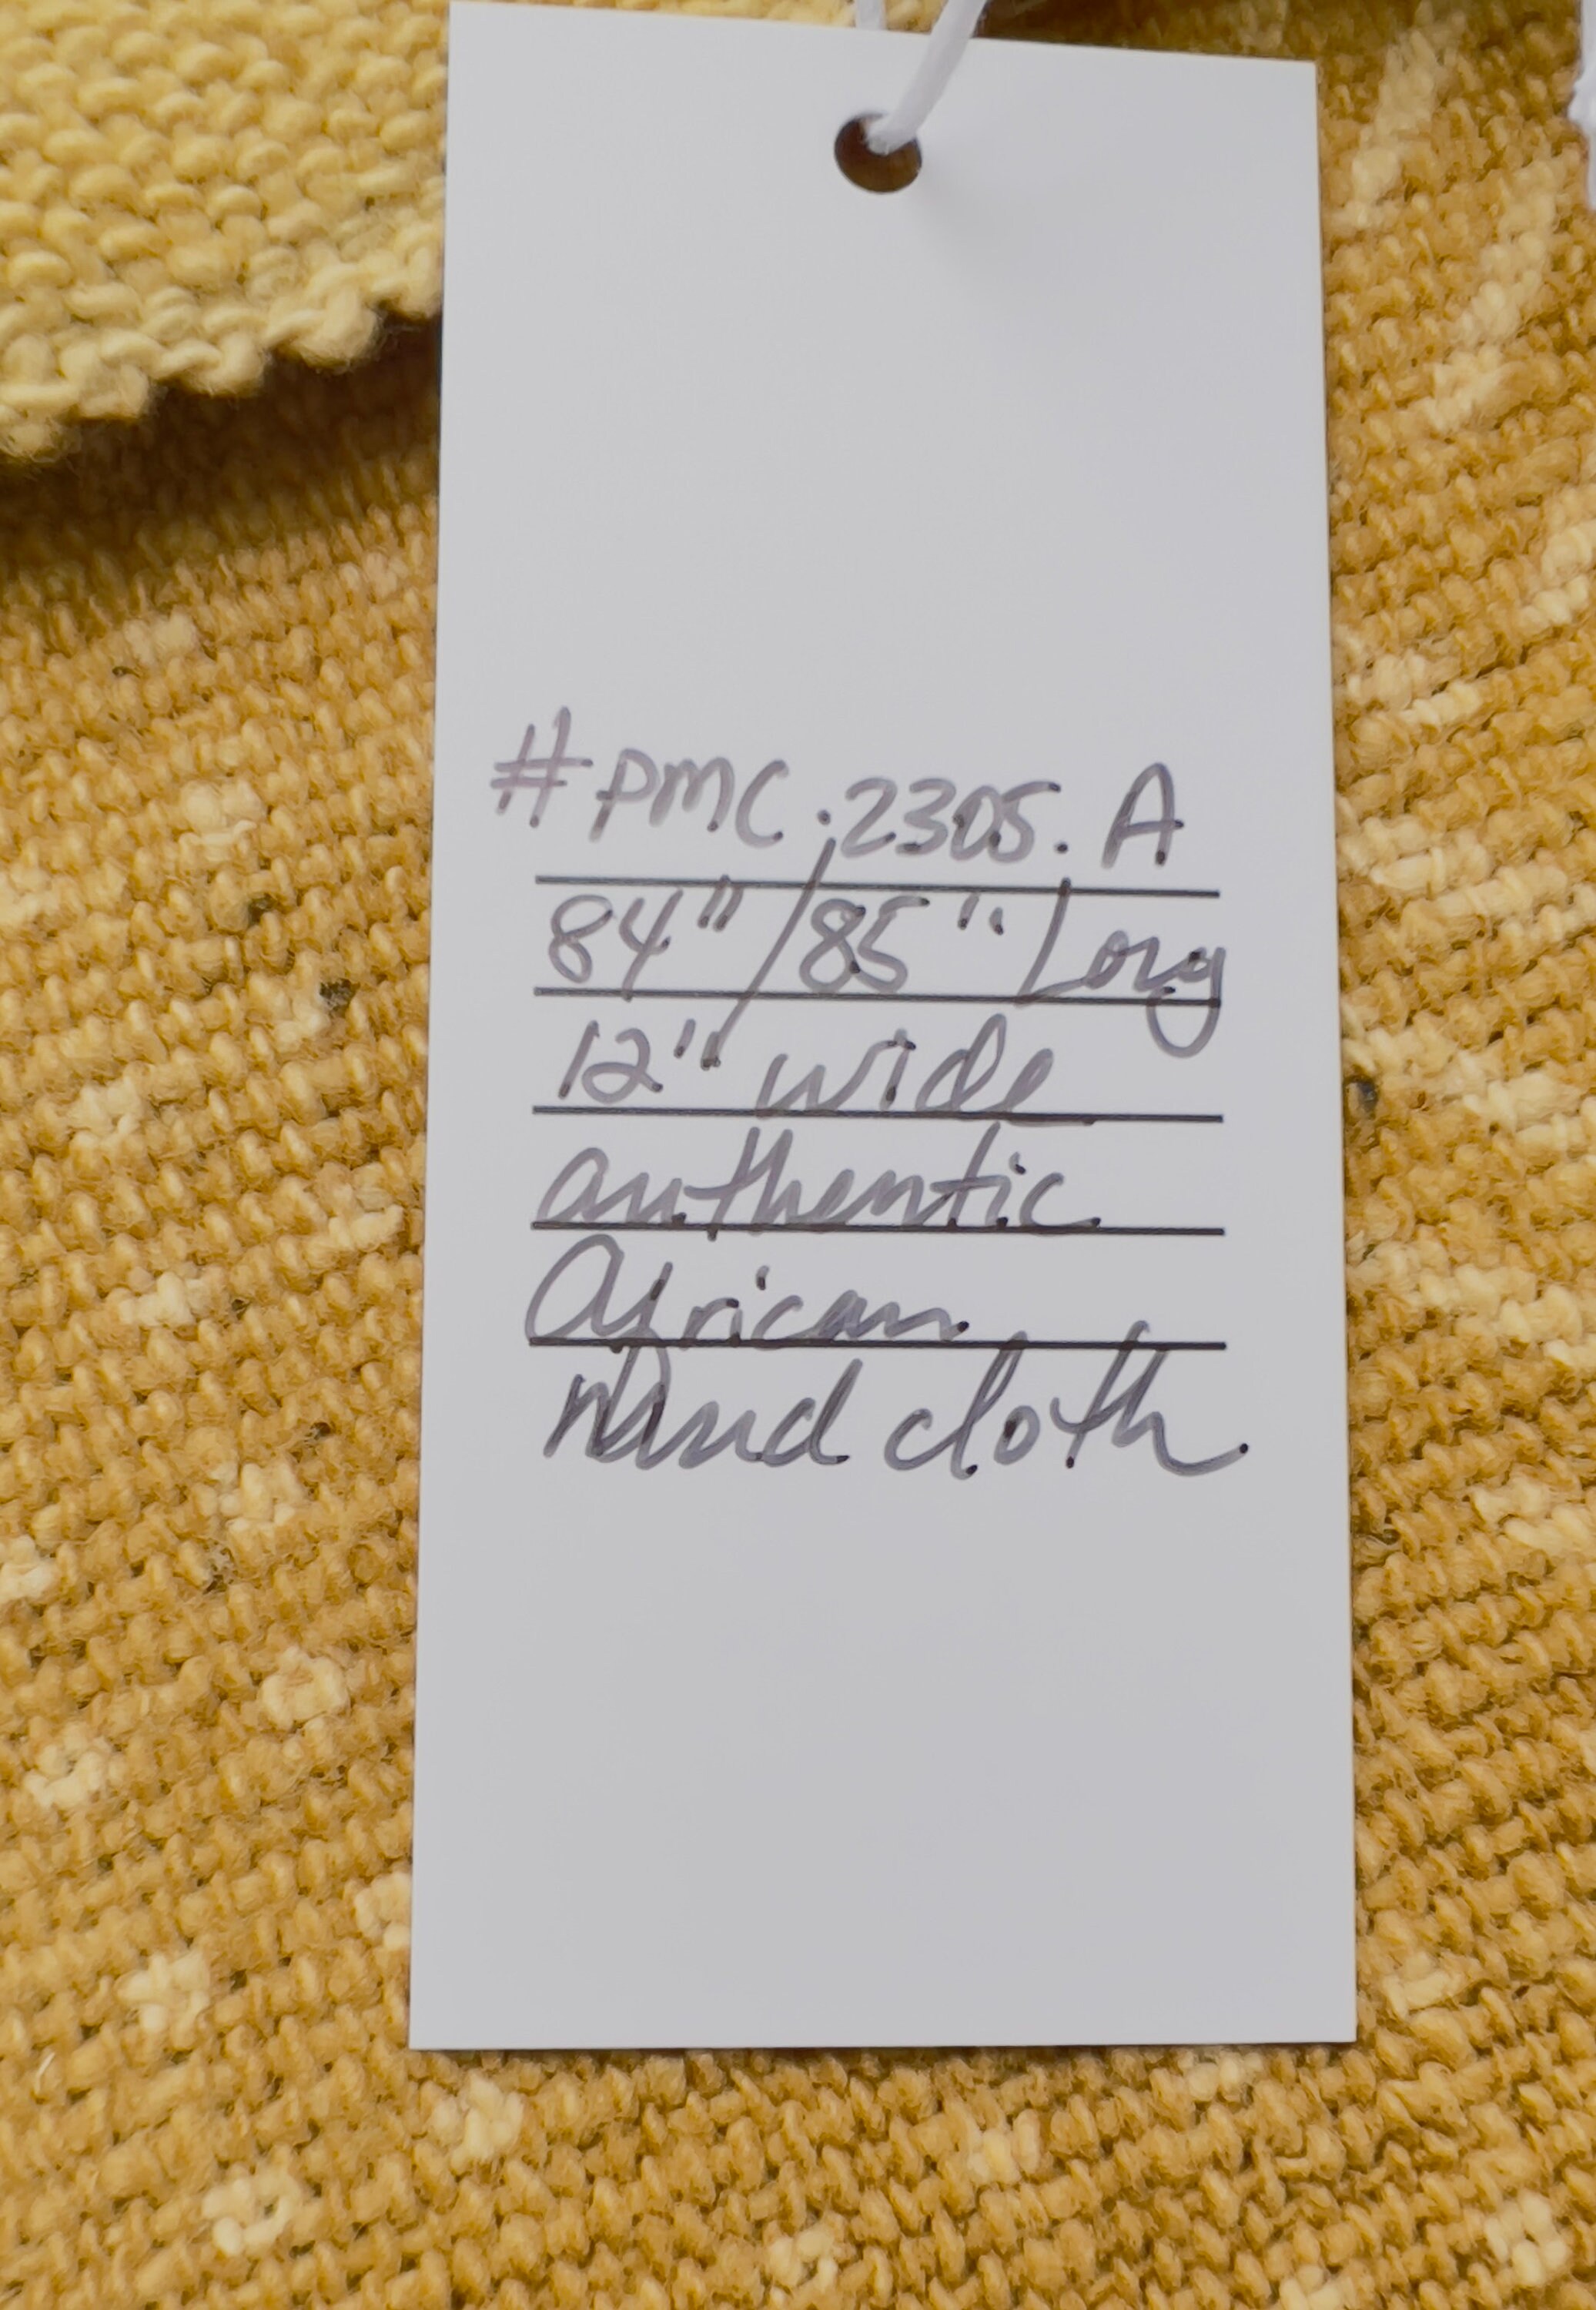 #PMC.2305.A
84"/85" Long
12" wide
authentic
African
Mud cloth.